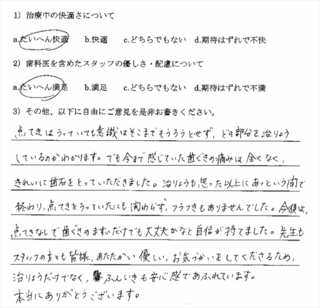 1）治療中の快適さについて
a.たいへん快適　b.快適　c.どちらでもない　d.期待はずれで不快
2）歯科医を含めたスタッフの優しさ・配慮について
a.たいへん満足　b.満足　c.どちらでもない　d.期待はずれで不満
3）その他、以下に自由にご意見を是非お書きください。
点てきはうっていても意識はそこまでもうろうとせず、どの部分を治りょう
しているのかがわかります。でも今まで感じていた歯ぐきの痛みは全くなく、
きれいに歯石をとっていただきました。治りょうも思った以上にあっという間で
終わり、点てきをうっていたにも関わらず、フラつきもありませんでした。今後は、
点てきなしで歯ぐきのますいだけでも大丈夫かなと自信が持てました。先生も
スタッフの方も皆様、あたたかい優しい、お気づかいをしてくださるため、
治りょうだけでなく、ふんいきも安心感であふれています。
本当にありがとうございます。